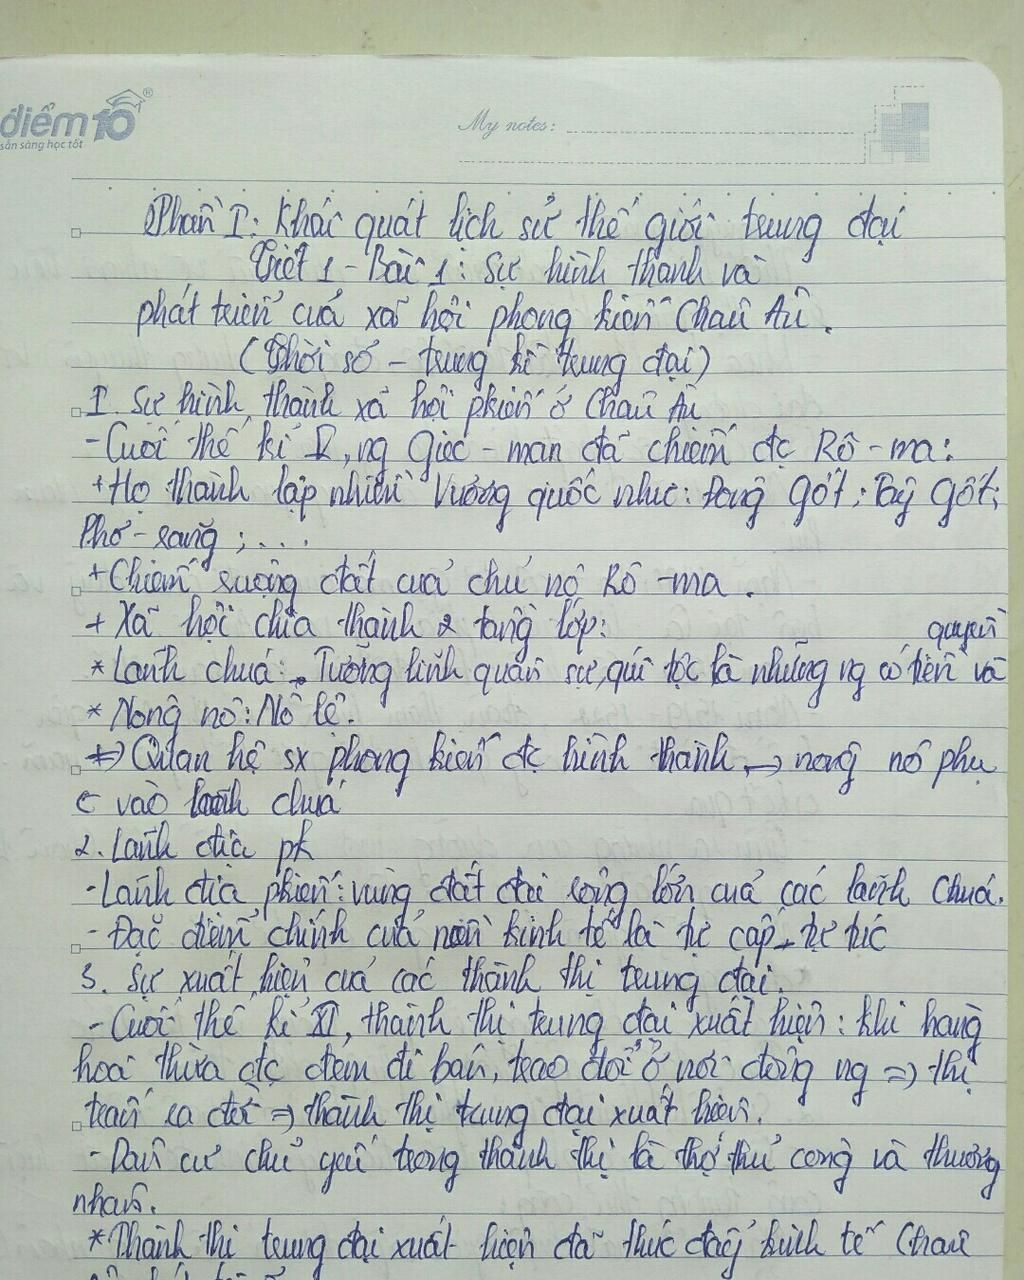 điểm10®
sẵn sàng học tốt
My notes:
Phần I: Khái quát lịch sử thế giới trung đại
Tiết 1 - Bài 1: Sự hình thành và
phát triển của xã hội phong kiến Châu Âu.
(Thời sơ - trung kì trung đại)
1. Sự hình thành xã hội pkiến ở Châu Âu
- Cuối thế kỉ V, ng Giéc - man đã chiếm đc Rô - ma:
+ Họ thành lập nhiều Vương quốc như: Đông Gốt; Tây Gốt;
Phơ - răng ; ...
+ Chiếm ruộng đất của chủ nô Rô - ma.
+ Xã hội chia thành 2 tầng lớp:
quyền
* Lãnh chúa: Tướng lĩnh quân sự, quí tộc là những ng có tiền và
* Nông nô: Nô lệ.
=> Quan hệ sx phong kiến đc hình thành -> nông nô phụ
vào lãnh chúa
2. Lãnh địa pk
- Lãnh địa pkiến: vùng đất đai rộng lớn của các lãnh chúa.
- Đặc điểm chính của nền kinh tế là tự cấp - tự túc
3. Sự xuất hiện của các thành thị trung đại.
- Cuối thế kỉ XI, thành thị trung đại xuất hiện: khi hàng
hoá thừa đc đem đi bán, trao đổi ở nơi đông ng => thị
trấn ra đời => thành thị trung đại xuất hiện.
- Dân cư chủ yếu trong thành thị là thợ thủ công và thương
nhân.
* Thành thị trung đại xuất hiện đã thúc đẩy kinh tế Châu